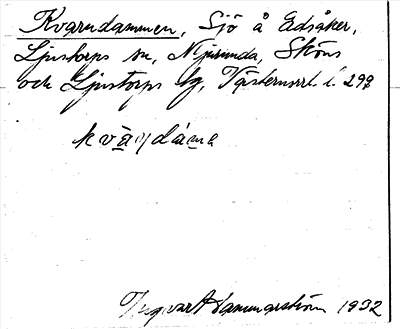 Kvarndammen, Sjö å Edsåker,
Ljustorps sn, Njurunda, Sköns
och Ljustorps tg, Västernorrl. l. 299
kvä̱ṇdáma
Ingvar Hammarström 1932